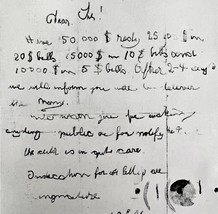 Dear Sir!
Have 50.000 $ redy 25 000 $ in
20 $ bills 15000 $ in 10 $ bills and
10000 $ in 5 $ bills After 2-4 days
we will inform you were to deliver
the Mony.
We warn you for making
anyding public or for notify the
the child is in gut care.
Indication for all letters are
singnature